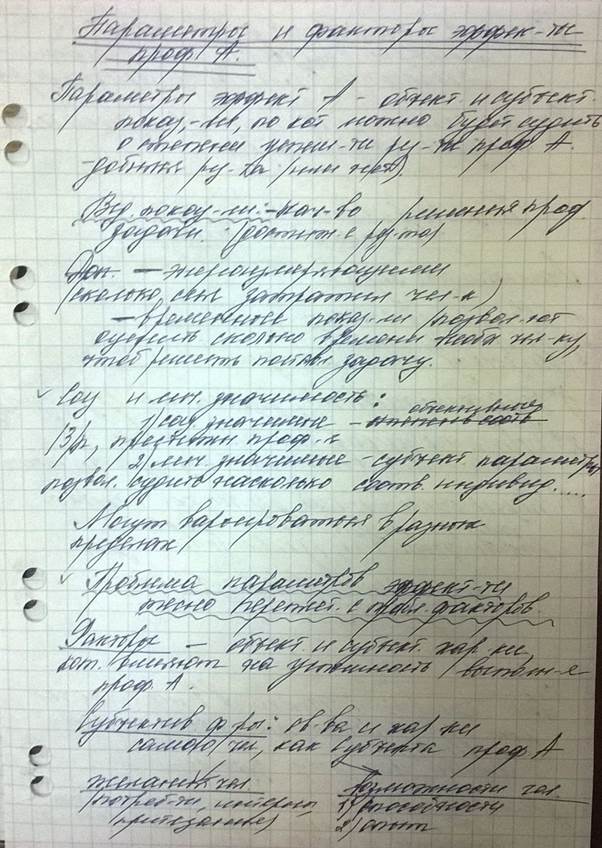 Параметры и факторы эффек-ти
проф. А.
Параметры эффект А - объект. и субъект.
показ.-ли, по кот можно будет судить
о степени успеш-ти проф А.
(или нет).
Вед. показ-ли: - кач-во решения проф
задачи.
Доп. -
(сколько сил затратил чел-к)
- временные показ-ли (позвол-ют
оценить сколько времени необх чел-ку,
чтоб решить постав задачу.
Соц и лич. значимость:
1) соц значимые - объективные
(З/п, престижн проф-и
2) лич. значимые - субъект. параметры
позвол. судить насколько соотв. индивид....
Могут варьироваться в разных
пределах)
Проблема параметров эффект-ти
тесно переплет. с пробл. факторов.
Факторы - объект. и субъект. хар-ки,
кот. влияют на успешность выполн-я
проф. А.
Субъектив ф-ры: св-ва и хар-ки
самого чел, как субъекта проф А
желания чел возможности чел.
(потреб-ти, интересы, 1) способности
притязания) 2) опыт